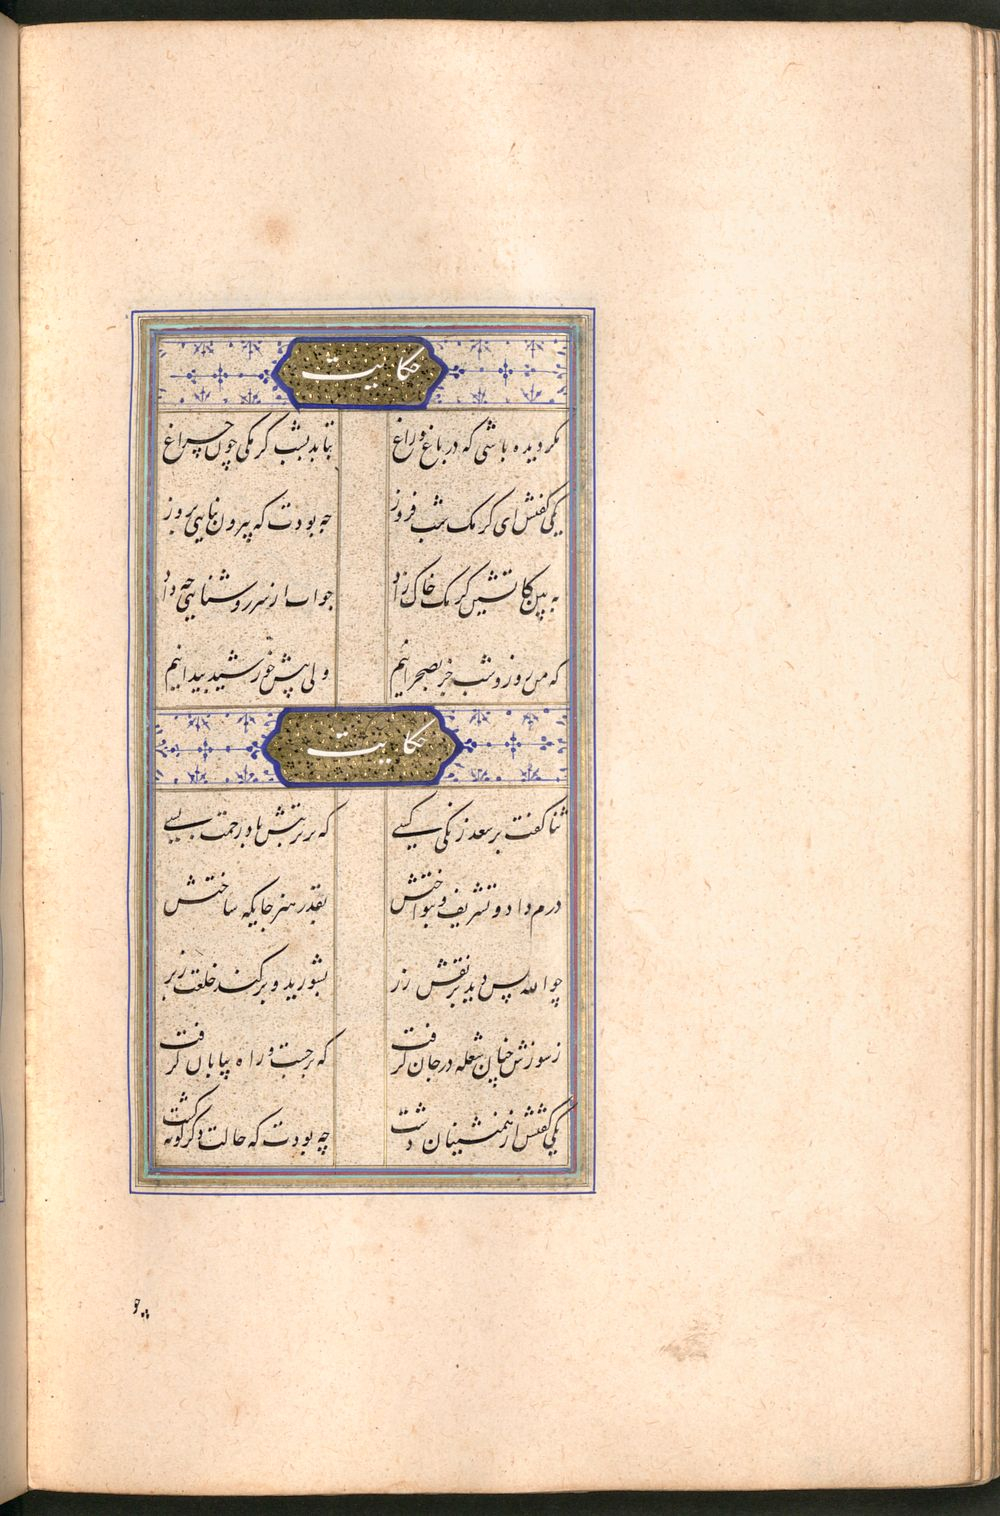 حکایت
مگر دیده باشی که در باغ و راغ بتابد بشب کرمکی چون چراغ
یکی گفتش ای کرمک شب فروز چه بودت که بیرون نیایی بروز
به بین کاتشین کرمک خاک زاد جواب از سر روشنایی چه داد
که من روز و شب جز بصحرا نیم ولی پیش خورشید پیدا نیم
حکایت
ثنا گفت بر سعد زنگی کسی که بر تربتش باد رحمت بسی
درم داد و تشریف و بنواختش بقدر هنر جایگه ساختش
چو الله بس دید بر نقش زر بشورید و برکند خلعت ز بر
ز سوزش چنان شعله در جان گرفت که برجست و راه بیابان گرفت
یکی گفتش از همنشینان دشت چه بودت که حالت دگرگونه گشت